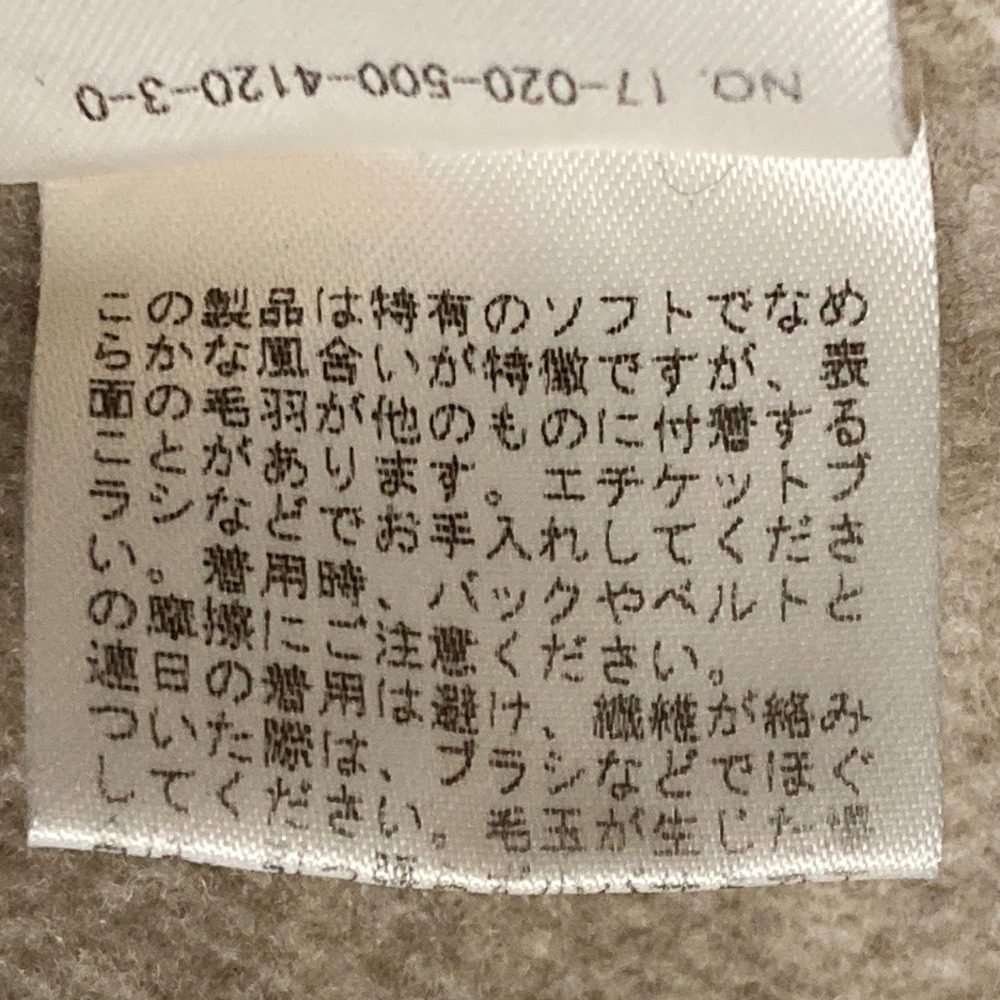 NO. 17-020-500-4120-3-0
この製品は特有のソフトでなめ
らかな風合いが特徴ですが、表
面の毛羽が他のものに付着する
ことがあります。エチケットブ
ラシなどでお手入れしてくださ
い。着用時、バックやベルトと
の摩擦にご注意ください。
連日の着用は避け、繊維が絡み
ついた際は、ブラシなどでほぐ
してください。毛玉が生じた場